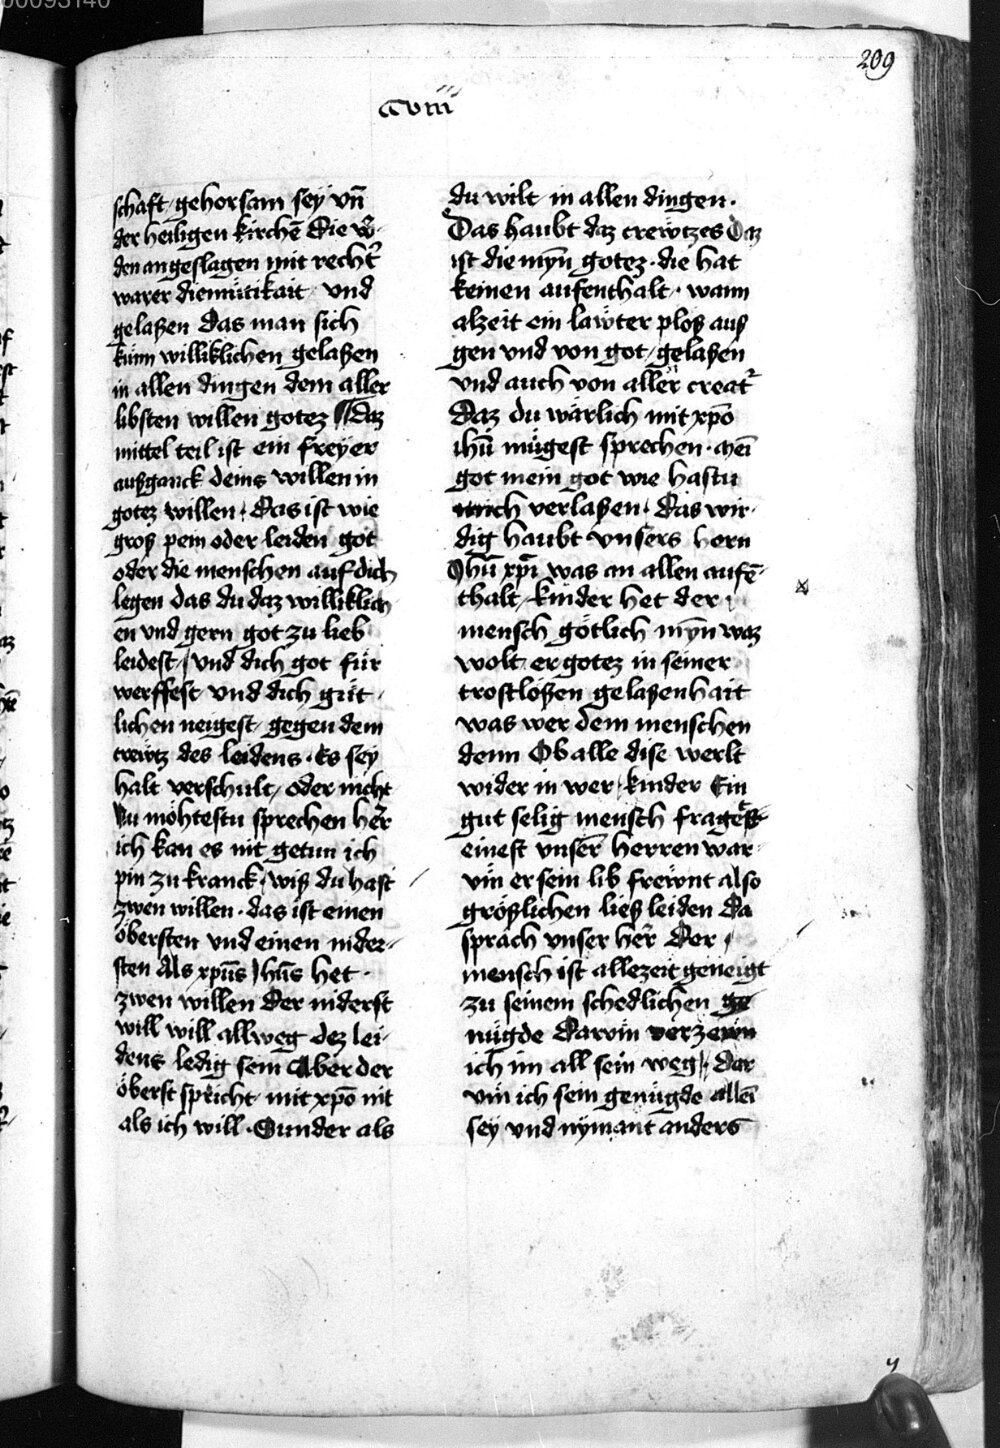 00093140
209
ccviii
schaft gehorsam sey vn̄
der heiligen kirchē Die w̄⸗
den angeslagen mit recht᷑
warer diemütikait vnd
gelaßen das man sich
künn williklichen gelaßen
in allen dingen dem aller
libsten willen gotez ¶ daz
mittel teil ist ein freyer
außganck deins willen in
gotez willen · das ist wie
groß pein oder leiden got
oder die menschen auf dich
legen das du daz williklich⸗
en vnd gern got zu lieb
leidest / vnd dich got für
werffest vnd dich güt⸗
lichen neigest gegen dem
crewtz des leidens · Es sey
halt verschult / oder nicht
Nu möhtestu sprechen her̄
ich kan es nit getun ich
pin zu kranck / wiß du hast
zwen willen · das ist einen
öbersten vnd einen nider⸗
sten Als xpūs Jhūs het ·
zwen willen Der niderst
will will allweg dez lei⸗
dens ledig sein Aber der
öberst spricht mit xpō nit
als ich will · Sunder als
du wilt in allen dingen ·
Das haubt daz crewtzes Daz
ist die mȳn gotez · die hat
keinen aufenthalt · wann
alzeit ein lawter ploß auß
gen vnd von got / gelaßen
vnd auch von aller creat᷑
Daz du wärlich mit xpō
ihū mügest sprechen · meī
got mein got wie hastu
mich verlaßen · Das wir⸗
dig haubt vnsers hern
Jhū xpī was an allen aufē⸗
thalt / kinder het der
mensch götlich mȳn waz
wolt er gotez in seiner
trostlößen gelaßenhait
was wer dem menschen
denn Ob alle dise werlt
wider in wer / kinder Ein
gut selig mensch fraget
einest vnser̄ herren war⸗
vm̄ er sein lib frewnt also
größlichen ließ leiden Da
sprach vnser her̄ Der
mensch ist allezeit geneigt
zu seinem schedlichen ge
nügde Darvm̄ verzewn
ich im all sein weg / Dar
vm̄ ich sein genügde alleī
sey vnd nymant anders